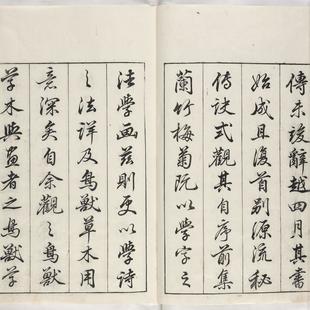 傳未竣辭越四月其書
始成且復首別源流秘
傳訣式觀其自序前集
蘭竹梅菊既以學字之
法學画茲則更以學詩
之法詳及鳥獸草木用
意深矣自余觀之鳥獸
學木與畫者之鳥獸學